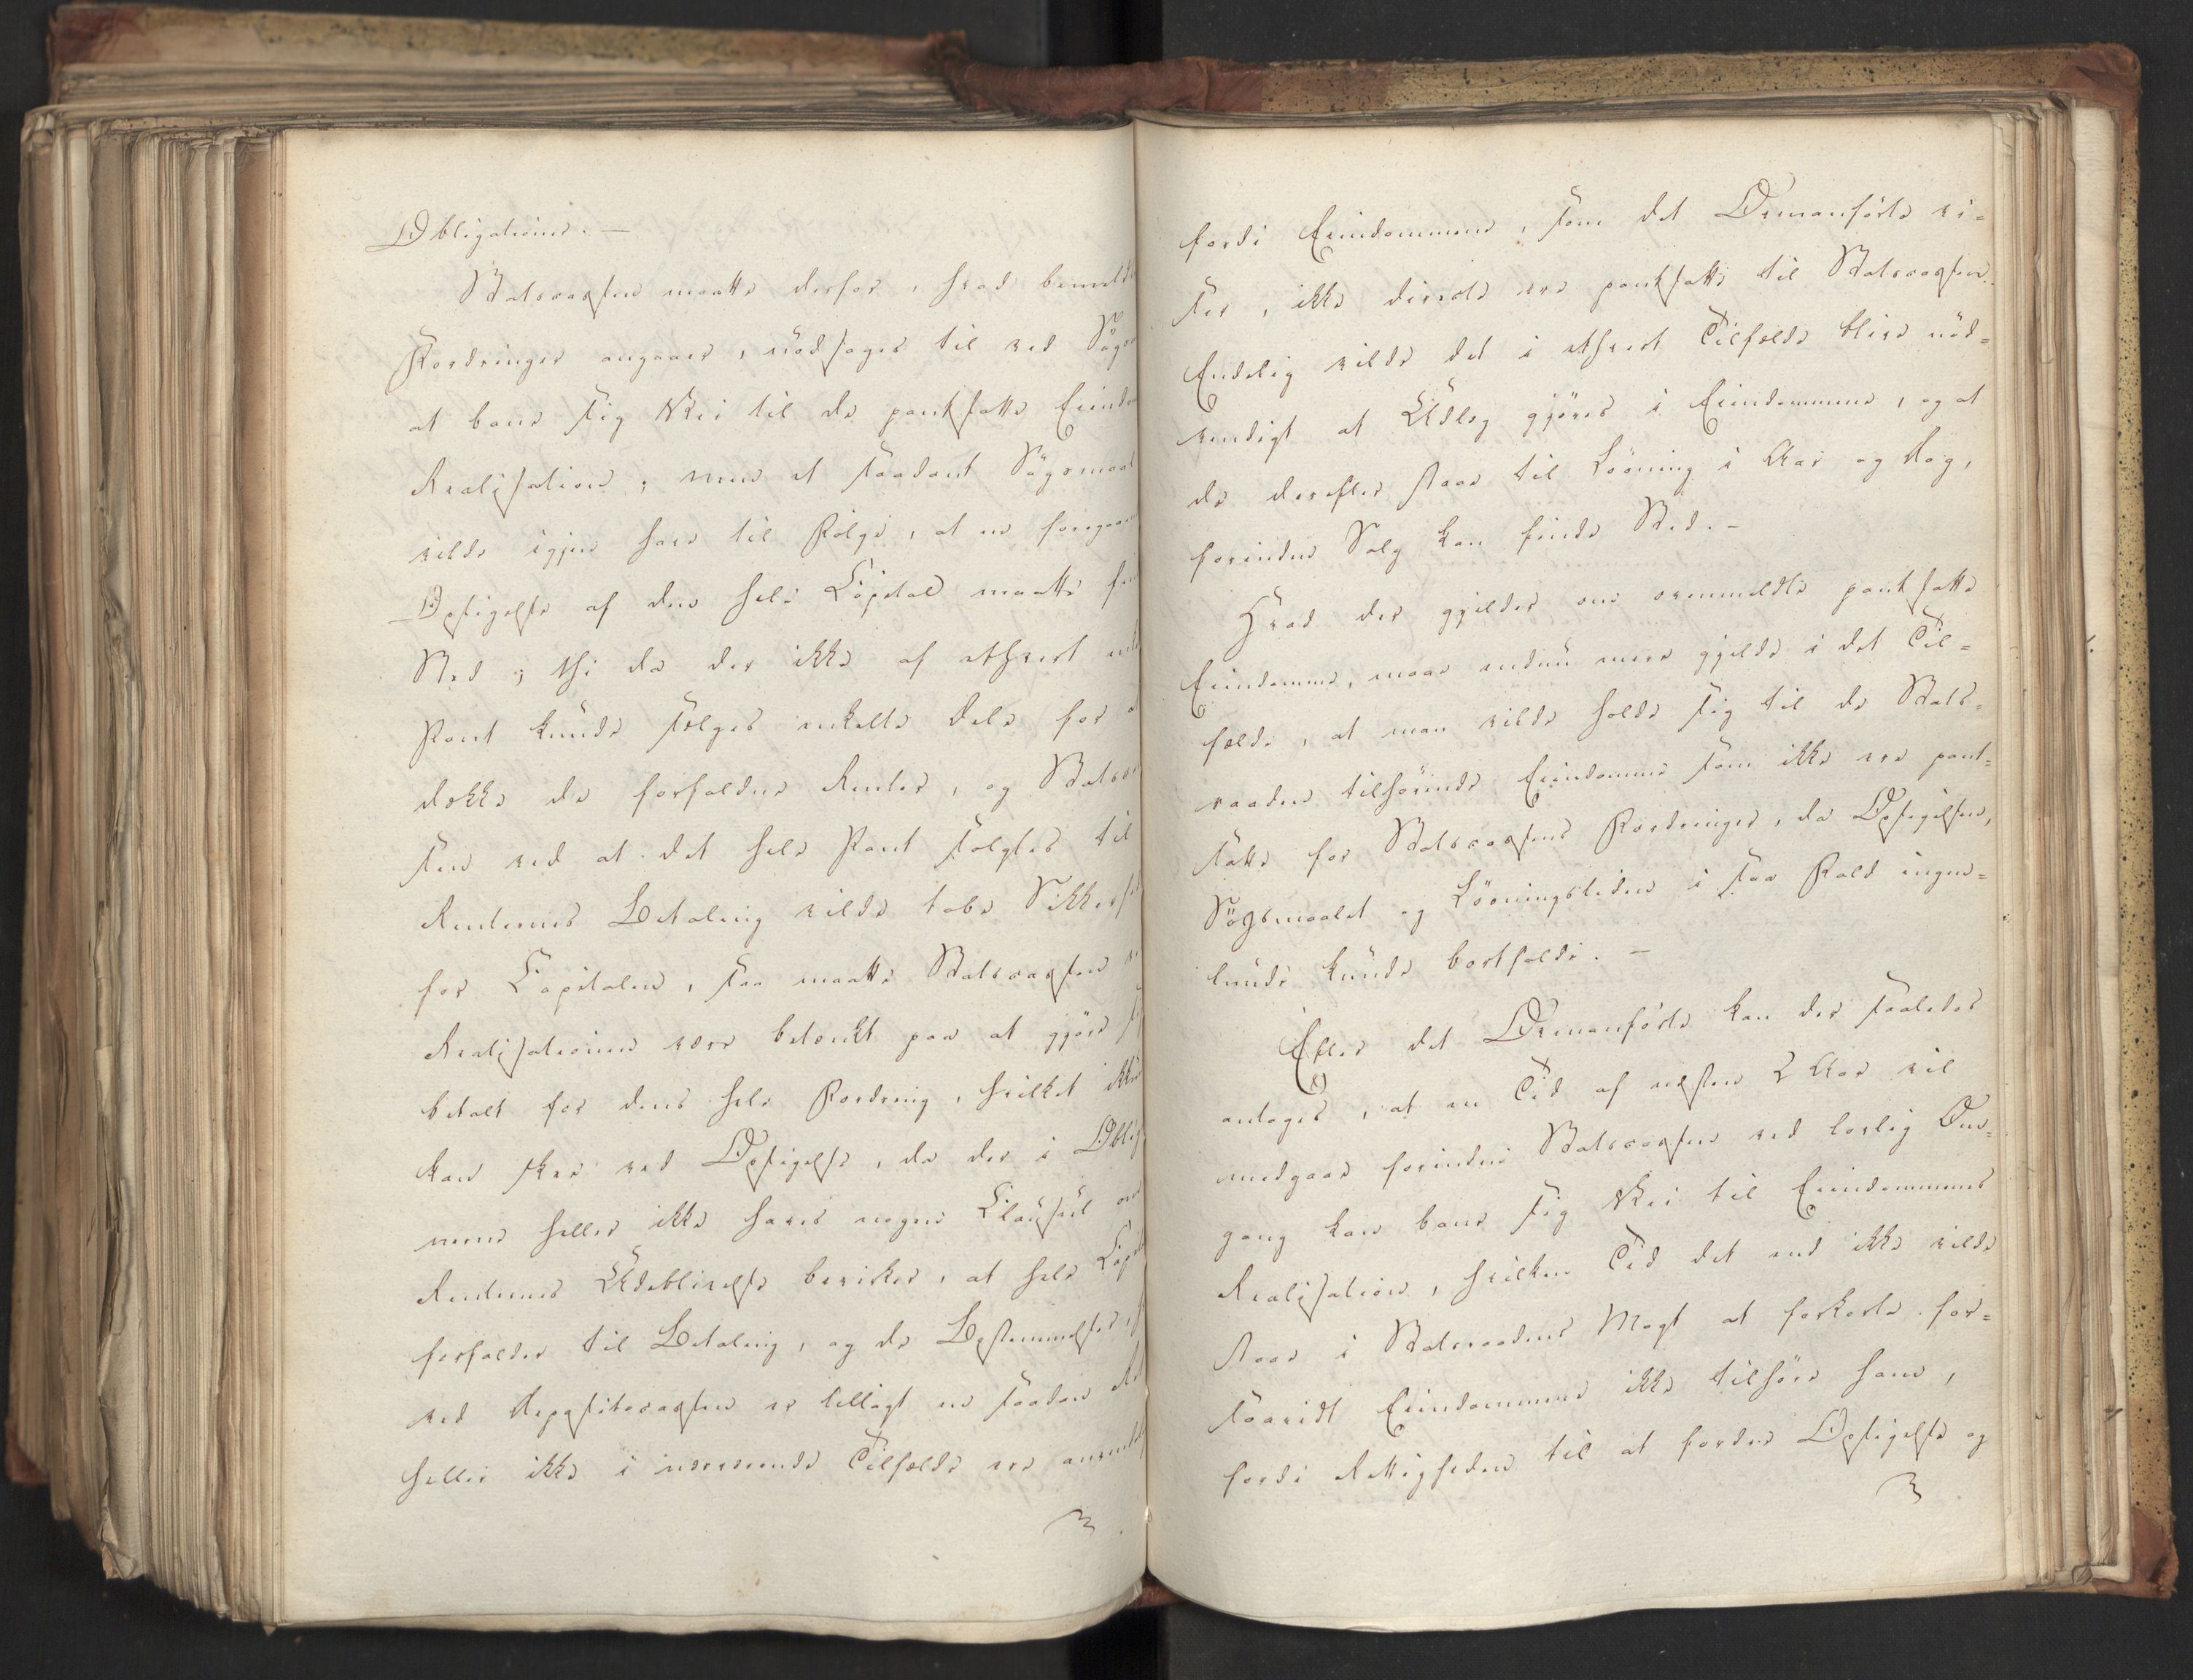 Obligationer. —
Statscassen maatte derfor, hvad bemeldte
Fordringer angaaer, nödsages til ved Sögs
at bane sig Vei til de pantsatte Eiendo
Realisation; men et saadant Sögsmaal
vilde igjen have til Fölge, at en foregaaen
Opsigelse af den hele Capital maatte fin
Sted; thi da der ikke af ethvert enk
Pant kunde sælges enkelte Dele for a
dække de forfaldne Renter, og Statscas
sen ved at det hele Pant solgtes til
Renternes Betaling vilde tabe Sikkerhe
for Capitalen, saa maatte Statscassen v
Realisationen være betænkt paa at gjöre si
betalt for dens hele Fordring, hvilket ikke
kan skee ved Opsigelse, da der i Oblig
nerne heller ikke haves nogen Clausul om
Renternes Udeblivelse bevirker, at hele Capit
forfalder til Betaling, og de Bestemmelser, h
ved Depositocassen er tillagt en saadan Ret
heller ikke i nærværende Tilfælde ere anvendel
fordi Eiendommene, som det Ovenanförte vi=
ser, ikke directe ere pantsatte til Statscassen.
Endelig vilde det i ethvert Tilfælde blive nöd=
vendigt at Udlæg gjöres i Eiendommene, og at
de derefter staae til Lösning i Aar og Dag,
forinden Salg kan finde Sted. —
Hvad der gjelder om ovenmeldte pantsatte
Eiendomme, maae endnu mere gjelde i det Til=
fælde, at man vilde holde sig til de Stats=
raaden tilhörende Eiendomme som ikke ere pant=
satte for Statscassens Fordringer, da Opsigelsen,
Sögsmaalet og Lösningstiden i saa Fald ingen=
lunde kunde bortfalde. —
Efter det Ovenanförte kan der saaledes
antages, at en Tid af næsten 2 Aar vil
medgaae forinden Statscassen ved lovlig Om=
gang kan bane sig Vei til Eiendommenes
Realisation, hvilken Tid det end ikke vilde
staae i Statsraadens Magt at forkorte for=
saavidt Eiendommene ikke tilhöre ham,
fordi Rettigheden til at fordre Opsigelse og